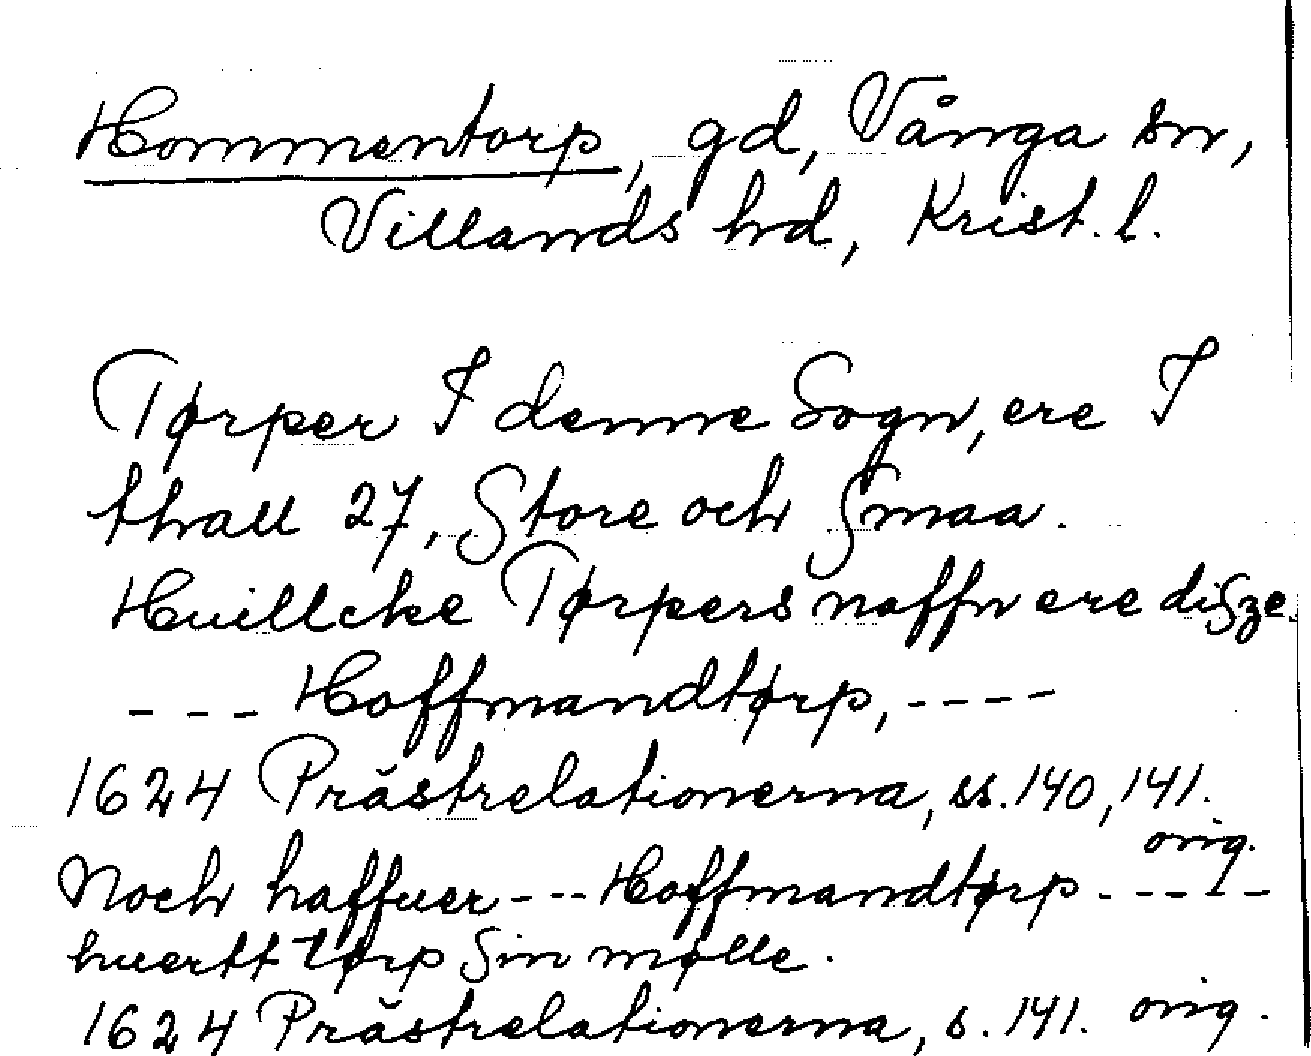 Hommentorp, gd, Vånga sn,
Villands hd, Krist. l.
Tørper I denne Sogn, ere I
thall 27, Store och Smaa.
Huillcke Tørpers naffn ere disze.
--- Hoffmandtørp, ----
1624 Prästrelationerna, ss. 140, 141.
orig.
Noch haffuer --- Hoffmandtørp -----
huertt tørp Sin mølle.
1624 Prästrelationerna, s. 141. orig.